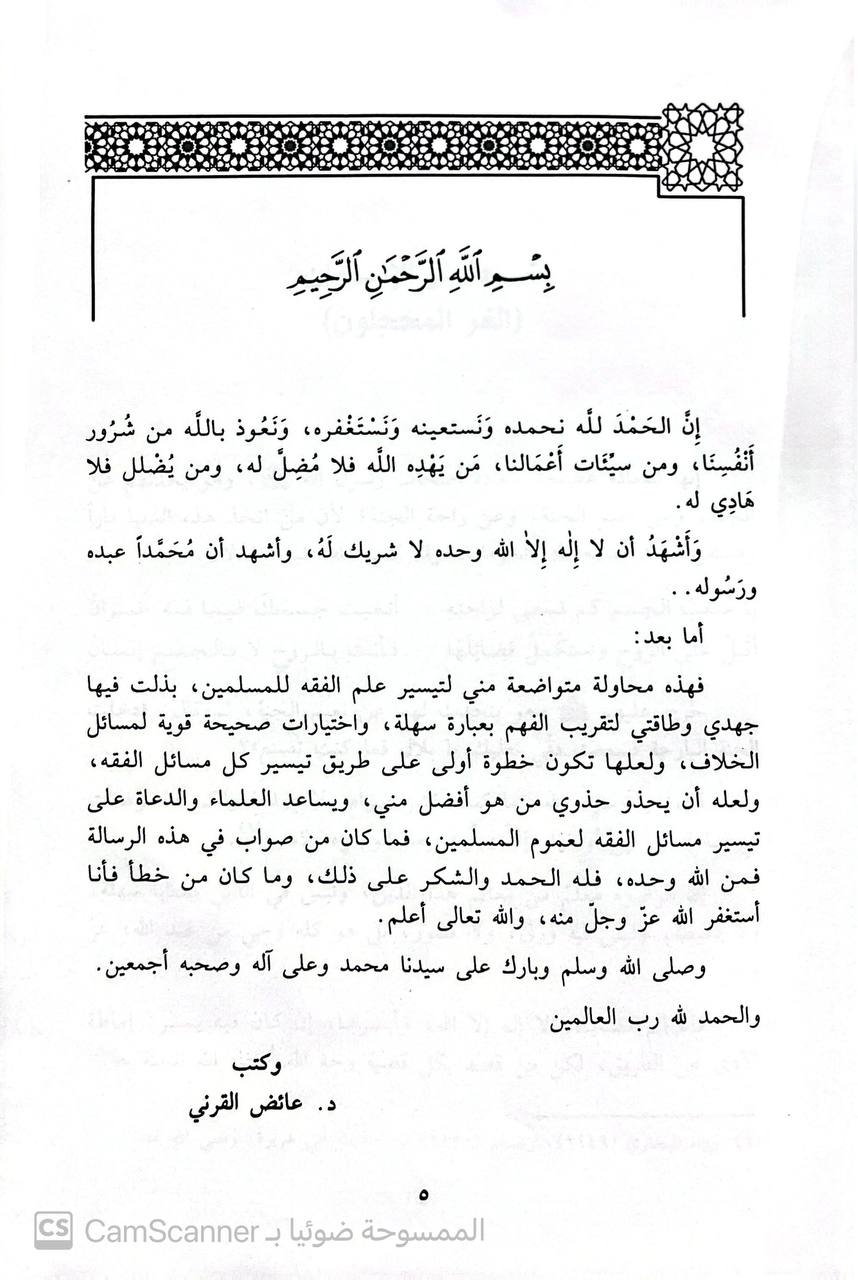 بِسْمِ اللَّهِ الرَّحْمَٰنِ الرَّحِيمِ
إِنَّ الحَمْدَ للَّه نحمده وَنَستعينه وَنَسْتَغْفره، وَنَعُوذ باللَّه من شُرُور
أَنْفُسِنَا، ومن سيِّئَات أَعْمَالنا، مَن يَهْدِه اللَّه فلا مُضِلَّ له، ومن يُضْلل فلا
هَادِي له.
وَأَشْهَدُ أن لا إِلٰه إلاّ الله وحده لا شريك لَهُ، وأشهد أن مُحَمَّداً عبده
ورَسُوله..
أما بعد:
فهذه محاولة متواضعة مني لتيسير علم الفقه للمسلمين، بذلت فيها
جهدي وطاقتي لتقريب الفهم بعبارة سهلة، واختيارات صحيحة قوية لمسائل
الخلاف، ولعلها تكون خطوة أولى على طريق تيسير كل مسائل الفقه،
ولعله أن يحذو حذوي من هو أفضل مني، ويساعد العلماء والدعاة على
تيسير مسائل الفقه لعموم المسلمين، فما كان من صواب في هذه الرسالة
فمن الله وحده، فله الحمد والشكر على ذلك، وما كان من خطأ فأنا
أستغفر الله عزّ وجلّ منه، والله تعالى أعلم.
وصلى الله وسلم وبارك على سيدنا محمد وعلى آله وصحبه أجمعين.
والحمد لله رب العالمين
وكتب
د. عائض القرني
٥
CS CamScanner الممسوحة ضوئيا بـ